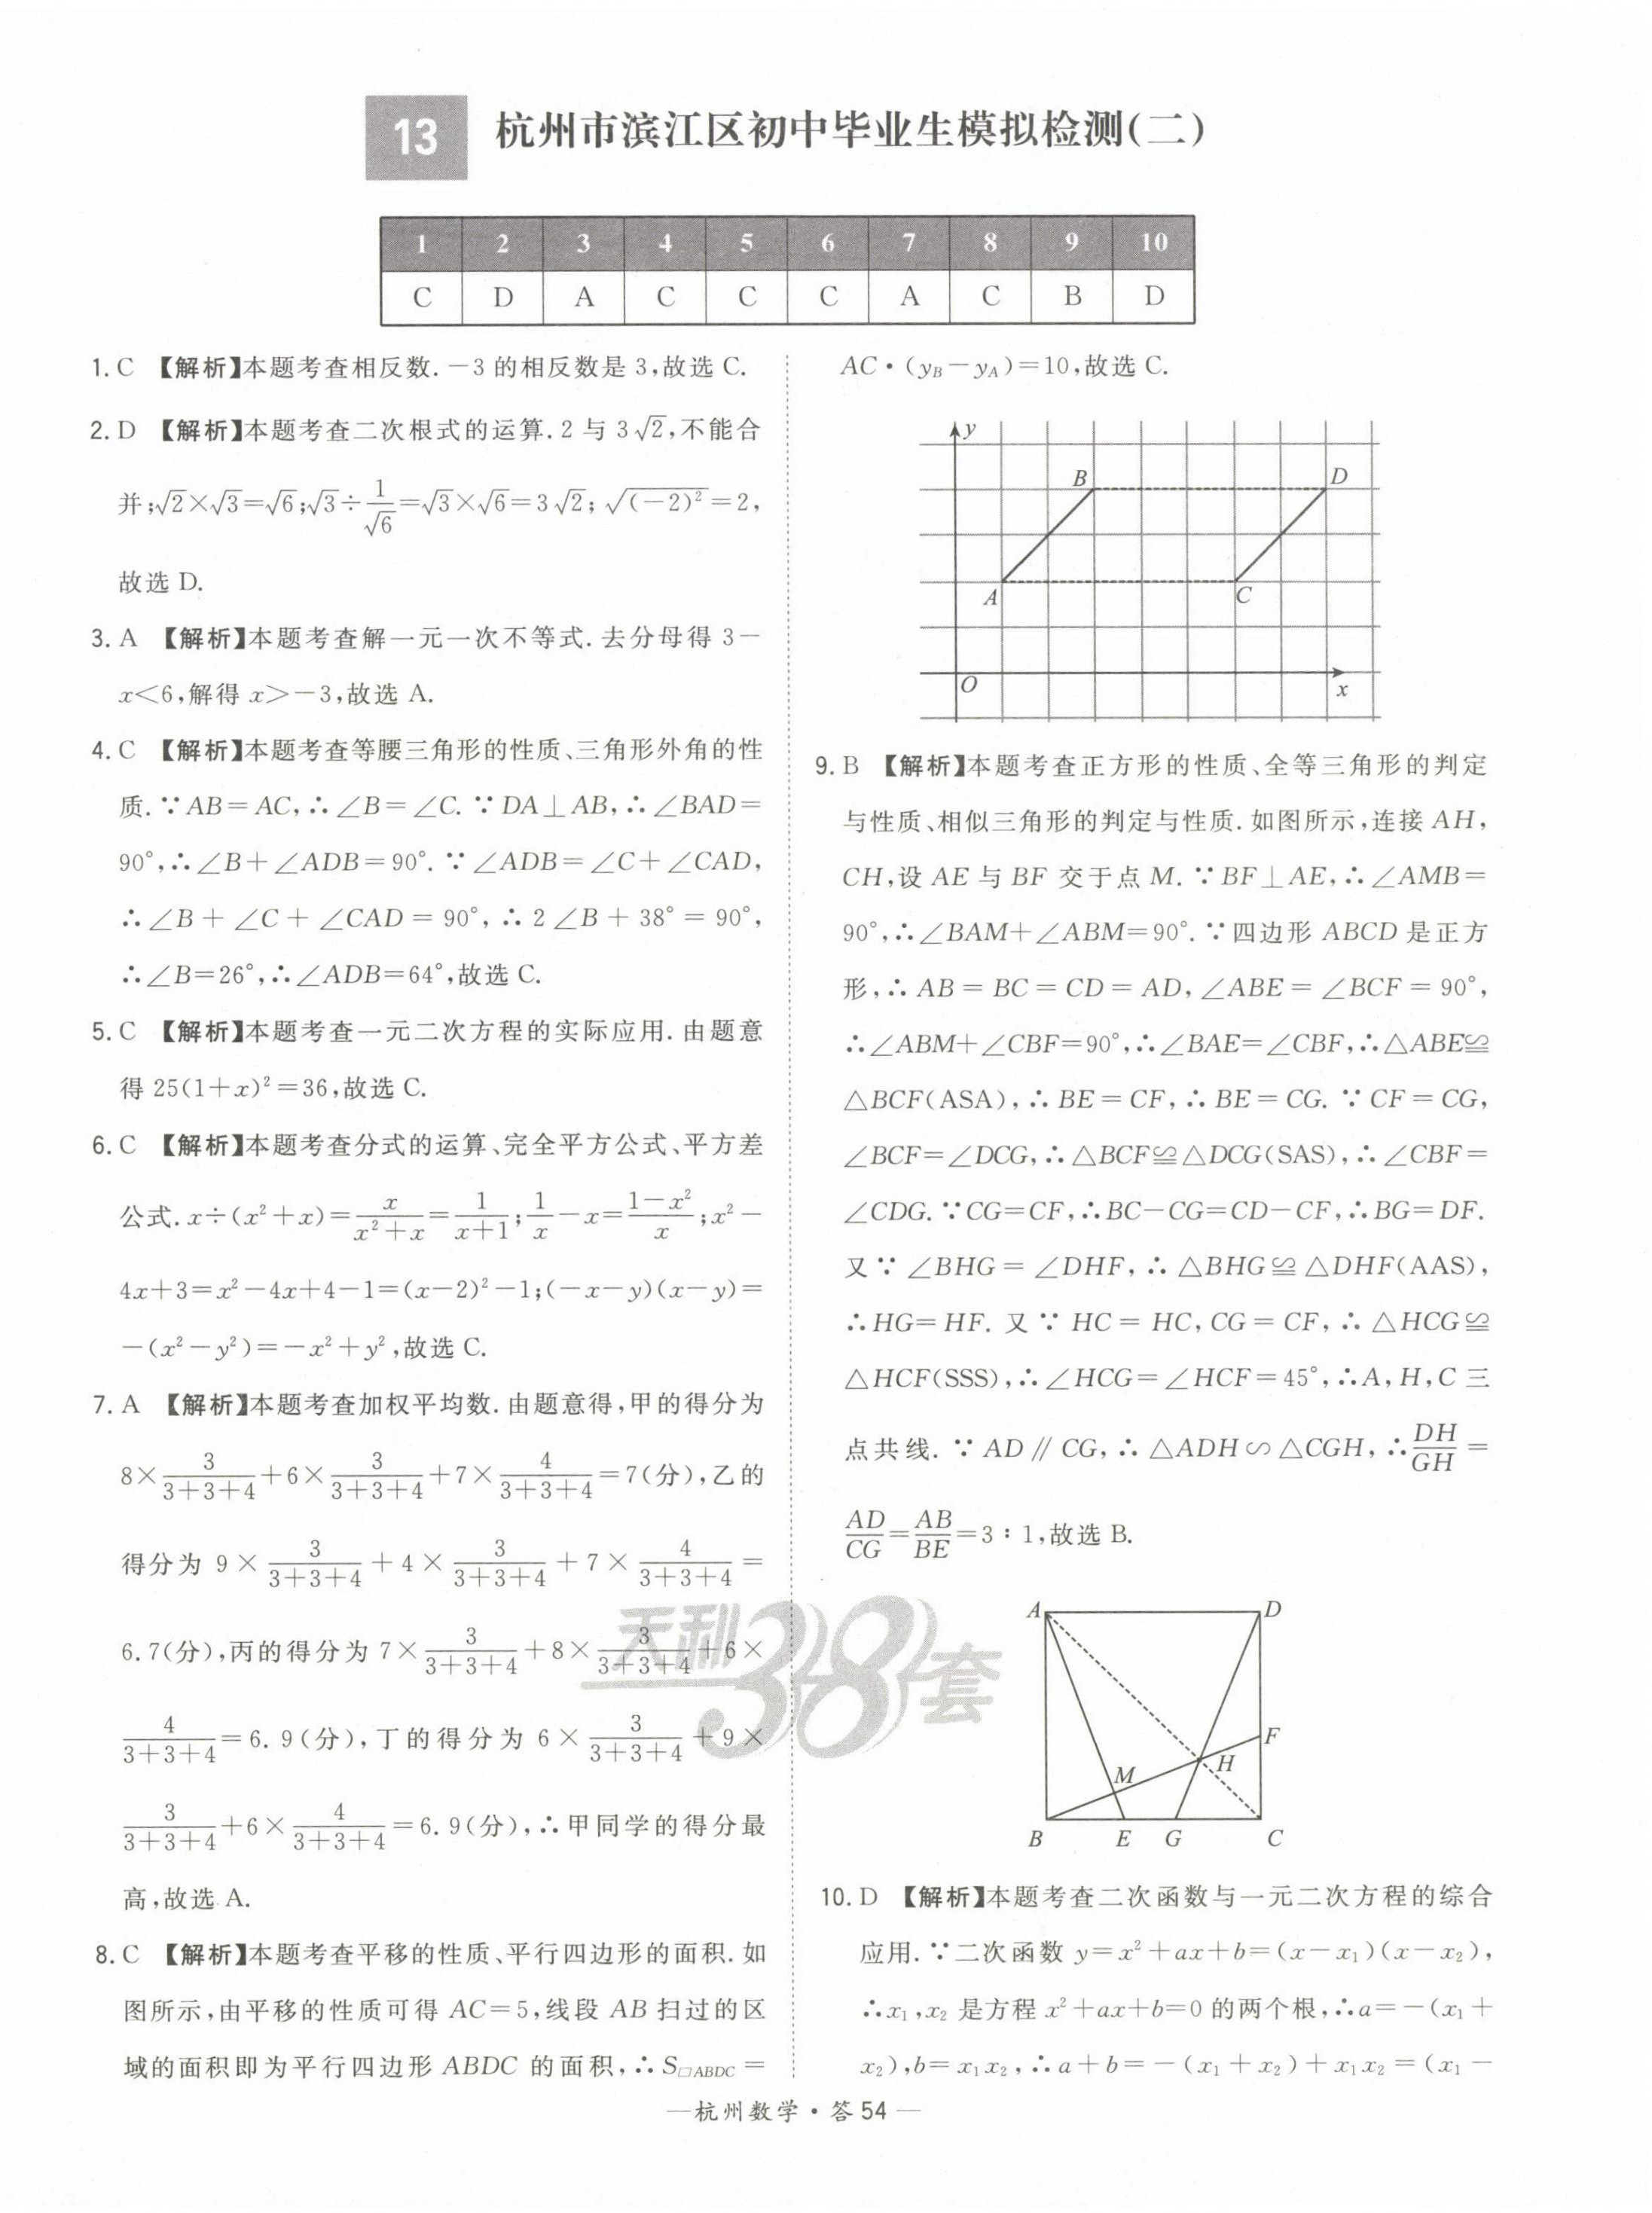 13 杭州市滨江区初中毕业生模拟检测(二)
1 2 3 4 5 6 7 8 9 10
C D A C C C A C B D
1. C 【解析】本题考查相反数.－3的相反数是3,故选C.
2. D 【解析】本题考查二次根式的运算.2与3√2,不能合
并;√2×√3=√6;√3÷1/√6=√3×√6=3√2;√(－2)²=2,
故选D.
3. A 【解析】本题考查解一元一次不等式.去分母得3－
x<6,解得x>－3,故选A.
4. C 【解析】本题考查等腰三角形的性质、三角形外角的性
质.∵AB=AC,∴∠B=∠C.∵DA⊥AB,∴∠BAD=
90°,∴∠B+∠ADB=90°.∵∠ADB=∠C+∠CAD,
∴∠B+∠C+∠CAD=90°,∴2∠B+38°=90°,
∴∠B=26°,∴∠ADB=64°,故选C.
5. C 【解析】本题考查一元二次方程的实际应用.由题意
得25(1+x)²=36,故选C.
6. C 【解析】本题考查分式的运算、完全平方公式、平方差
公式.x÷(x²+x)=x/(x²+x)=1/(x+1);1/x－x=(1－x²)/x;x²－
4x+3=x²－4x+4－1=(x－2)²－1;(－x－y)(x－y)=
－(x²－y²)=－x²+y²,故选C.
7. A 【解析】本题考查加权平均数.由题意得,甲的得分为
8×3/(3+3+4)+6×3/(3+3+4)+7×4/(3+3+4)=7(分),乙的
得分为9×3/(3+3+4)+4×3/(3+3+4)+7×4/(3+3+4)=
6.7(分),丙的得分为7×3/(3+3+4)+8×3/(3+3+4)+6×
4/(3+3+4)=6.9(分),丁的得分为6×3/(3+3+4)+9×
3/(3+3+4)+6×4/(3+3+4)=6.9(分),∴甲同学的得分最
高,故选A.
8. C 【解析】本题考查平移的性质、平行四边形的面积.如
图所示,由平移的性质可得AC=5,线段AB扫过的区
域的面积即为平行四边形ABDC的面积,∴S▱ABDC=
AC·(yB－yA)=10,故选C.
y
B D
A C
O x
9. B 【解析】本题考查正方形的性质、全等三角形的判定
与性质、相似三角形的判定与性质.如图所示,连接AH,
CH,设AE与BF交于点M.∵BF⊥AE,∴∠AMB=
90°,∴∠BAM+∠ABM=90°.∵四边形ABCD是正方
形,∴AB=BC=CD=AD,∠ABE=∠BCF=90°,
∴∠ABM+∠CBF=90°,∴∠BAE=∠CBF,∴△ABE≌
△BCF(ASA),∴BE=CF,∴BE=CG.∵CF=CG,
∠BCF=∠DCG,∴△BCF≌△DCG(SAS),∴∠CBF=
∠CDG.∵CG=CF,∴BC－CG=CD－CF,∴BG=DF.
又∵∠BHG=∠DHF,∴△BHG≌△DHF(AAS),
∴HG=HF.又∵HC=HC,CG=CF,∴△HCG≌
△HCF(SSS),∴∠HCG=∠HCF=45°,∴A,H,C三
点共线.∵AD∥CG,∴△ADH∽△CGH,∴DH/GH=
AD/CG=AB/BE=3∶1,故选B.
A D
F
M H
B E G C
天利38套
10. D 【解析】本题考查二次函数与一元二次方程的综合
应用.∵二次函数y=x²+ax+b=(x－x₁)(x－x₂),
∴x₁,x₂是方程x²+ax+b=0的两个根,∴a=－(x₁+
x₂),b=x₁x₂,∴a+b=－(x₁+x₂)+x₁x₂=(x₁－
—杭州数学·答54—